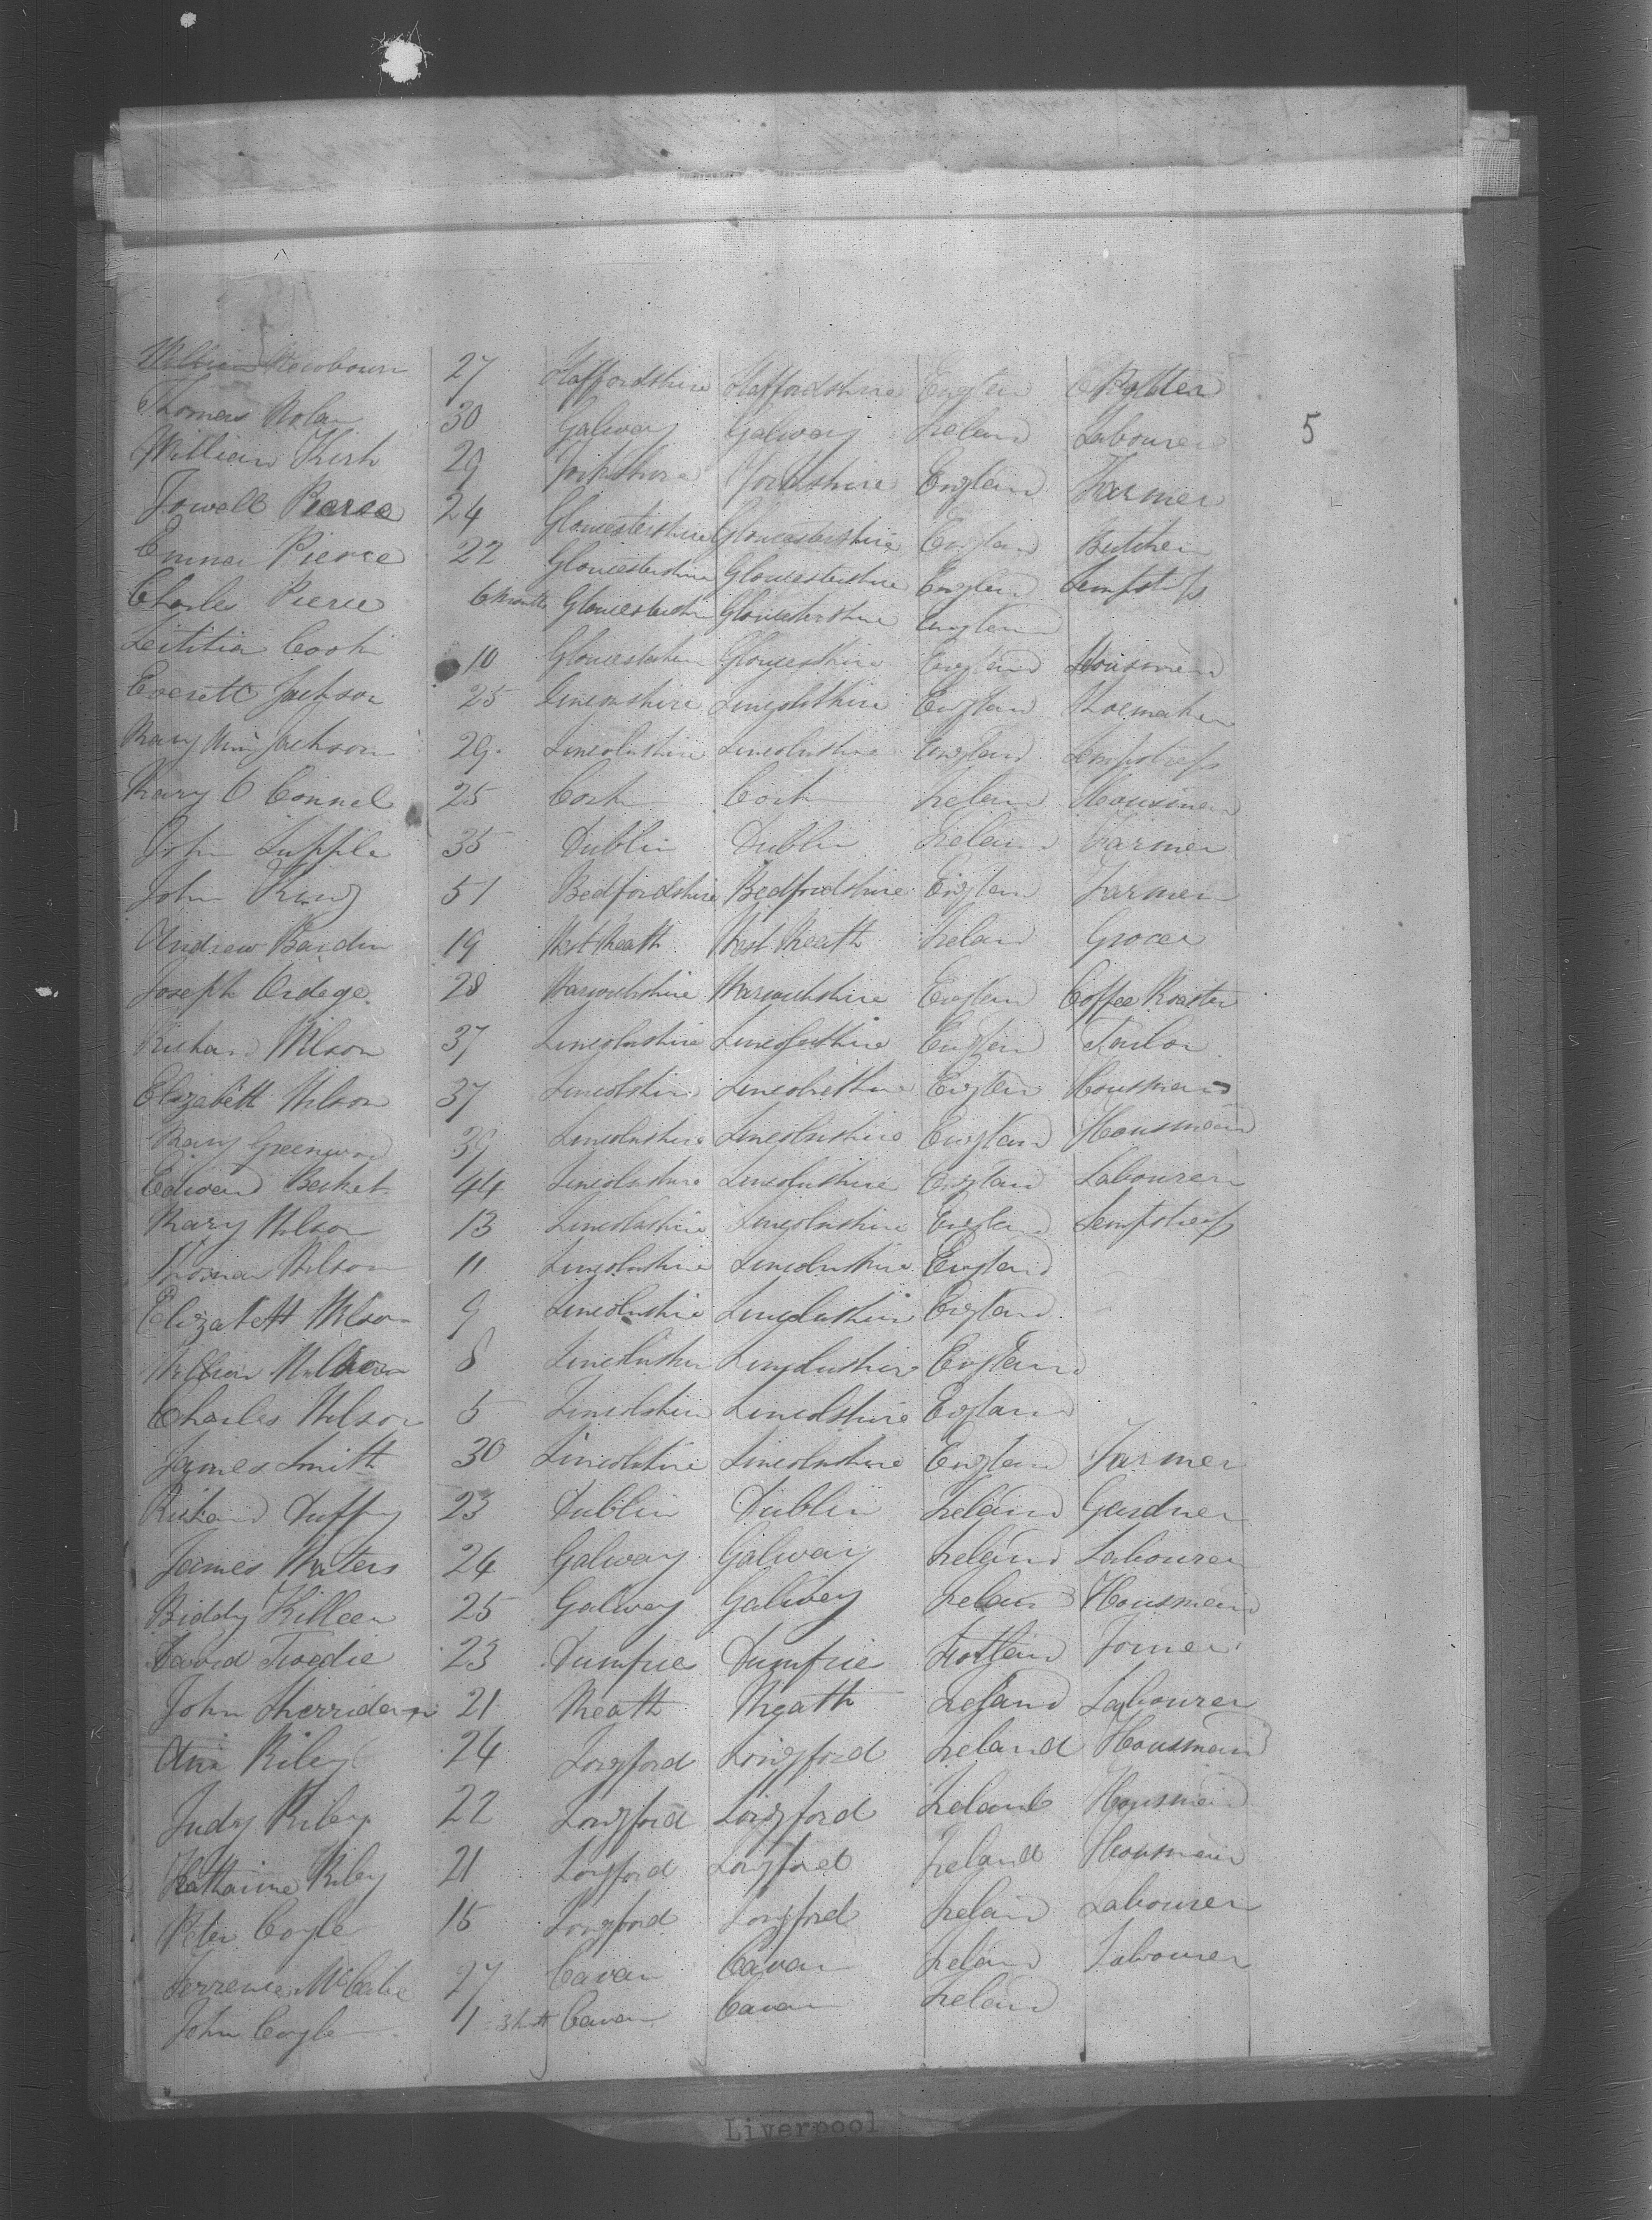 William Newbourn 27 Staffordshire Staffordshire England Potter
Thomas Nolan 30 Galway Galway Ireland Labourer
5
William Kirk 29 Yorkshire Yorkshire England Farmer
Powell Pierce 24 Gloucestershire Gloucestershire England Butcher
Emma Pierce 22 Gloucestershire Gloucestershire England Sempstress
Charles Pierce 6 Months Gloucestershire Gloucestershire England
Letitia Cook 10 Gloucestershire Gloucestershire England Housmaid
Everett Jackson 25 Lincolnshire Lincolnshire England Shoemaker
Mary Ann Jackson 29 Lincolnshire Lincolnshire England Sempstress
Mary O Connel 25 Cork Cork Ireland Housmaid
John 35 Dublin Dublin Ireland Farmer
John King 51 Bedfordshire Bedfordshire England Farmer
Andrew Bardin 19 West Meath West Meath Ireland Grocer
Joseph 28 Warwickshire Warwickshire England Coffee Roaster
Richard Wilson 37 Lincolnshire Lincolnshire England Tailor
Elizabeth Wilson 37 Lincolnshire Lincolnshire England Housmaid
Mary Greenwood 39 Lincolnshire Lincolnshire England Housmaid
Edward Becket 44 Lincolnshire Lincolnshire England Labourer
Mary Wilson 13 Lincolnshire Lincolnshire England Sempstress
Thomas Wilson 11 Lincolnshire Lincolnshire England
Elizabeth Wilson 9 Lincolnshire Lincolnshire England
William Wilson 8 Lincolnshire Lincolnshire England
Charles Wilson 5 Lincolnshire Lincolnshire England
James Smith 30 Lincolnshire Lincolnshire England Farmer
Richard Duffy 23 Dublin Dublin Ireland Gardner
James Waters 24 Galway Galway Ireland Labourer
Biddy Killeen 25 Galway Galway Ireland Housmaid
David Twedie 23 Dumfries Dumfries Scotland Joiner
John Sherridan 21 Meath Meath Ireland Labourer
Ann Riley 24 Longford Longford Ireland Housmaid
Judy Riley 22 Longford Longford Ireland Housmaid
Katharine Riley 21 Longford Longford Ireland Housmaid
Peter Coyle 15 Longford Longford Ireland Labourer
Terrence McCabe 27 Cavan Cavan Ireland Labourer
John Coyle 1 Cavan Cavan Ireland
Liverpool